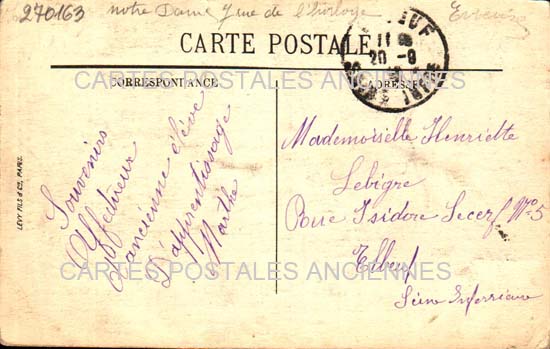 270163 notre Dame rue de l'horloge
CARTE POSTALE
CORRESPONDANCE
ADRESSE
11
20-9
CARTES POSTALES ANCIENNES
Souvenirs
Affectueux
ancienne élève
D'apprentissage
Marthe
Mademoiselle Henriette
Lebigre
Rue Isidore Lecerf No 5
Elbeuf
Seine Inferrieure
CARTES POSTALES ANCIENNES
LEVY FILS & Cie, PARIS